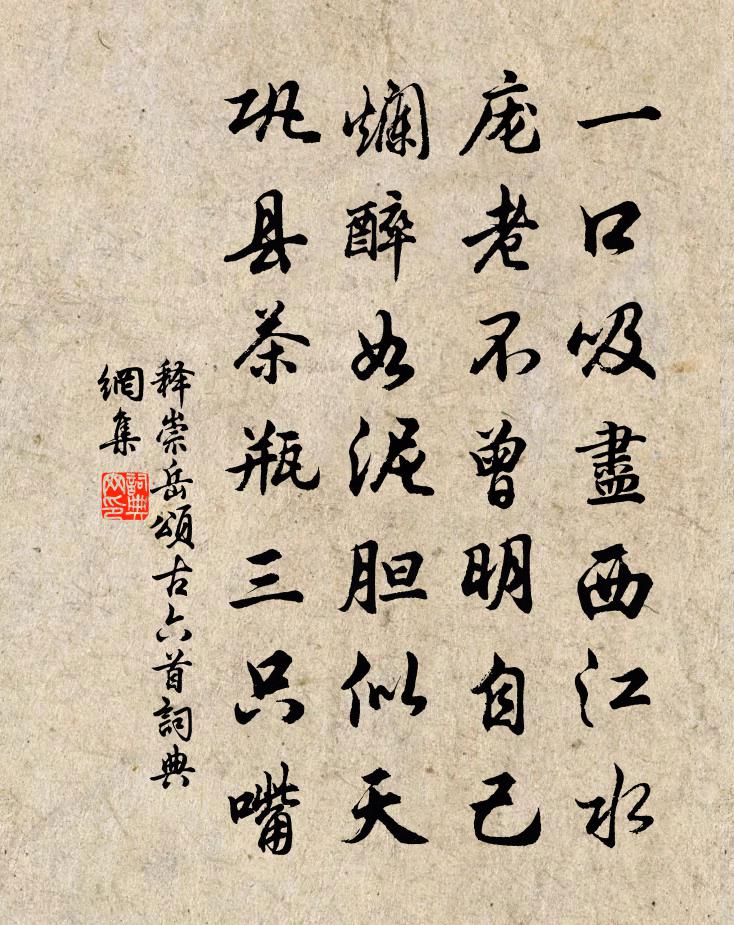 一口吸盡西江水
庞老不曾明自己
爛醉如泥胆似天
巩县茶瓶三只嘴
释崇岳頌古六首詞典
網集
詞典
网印